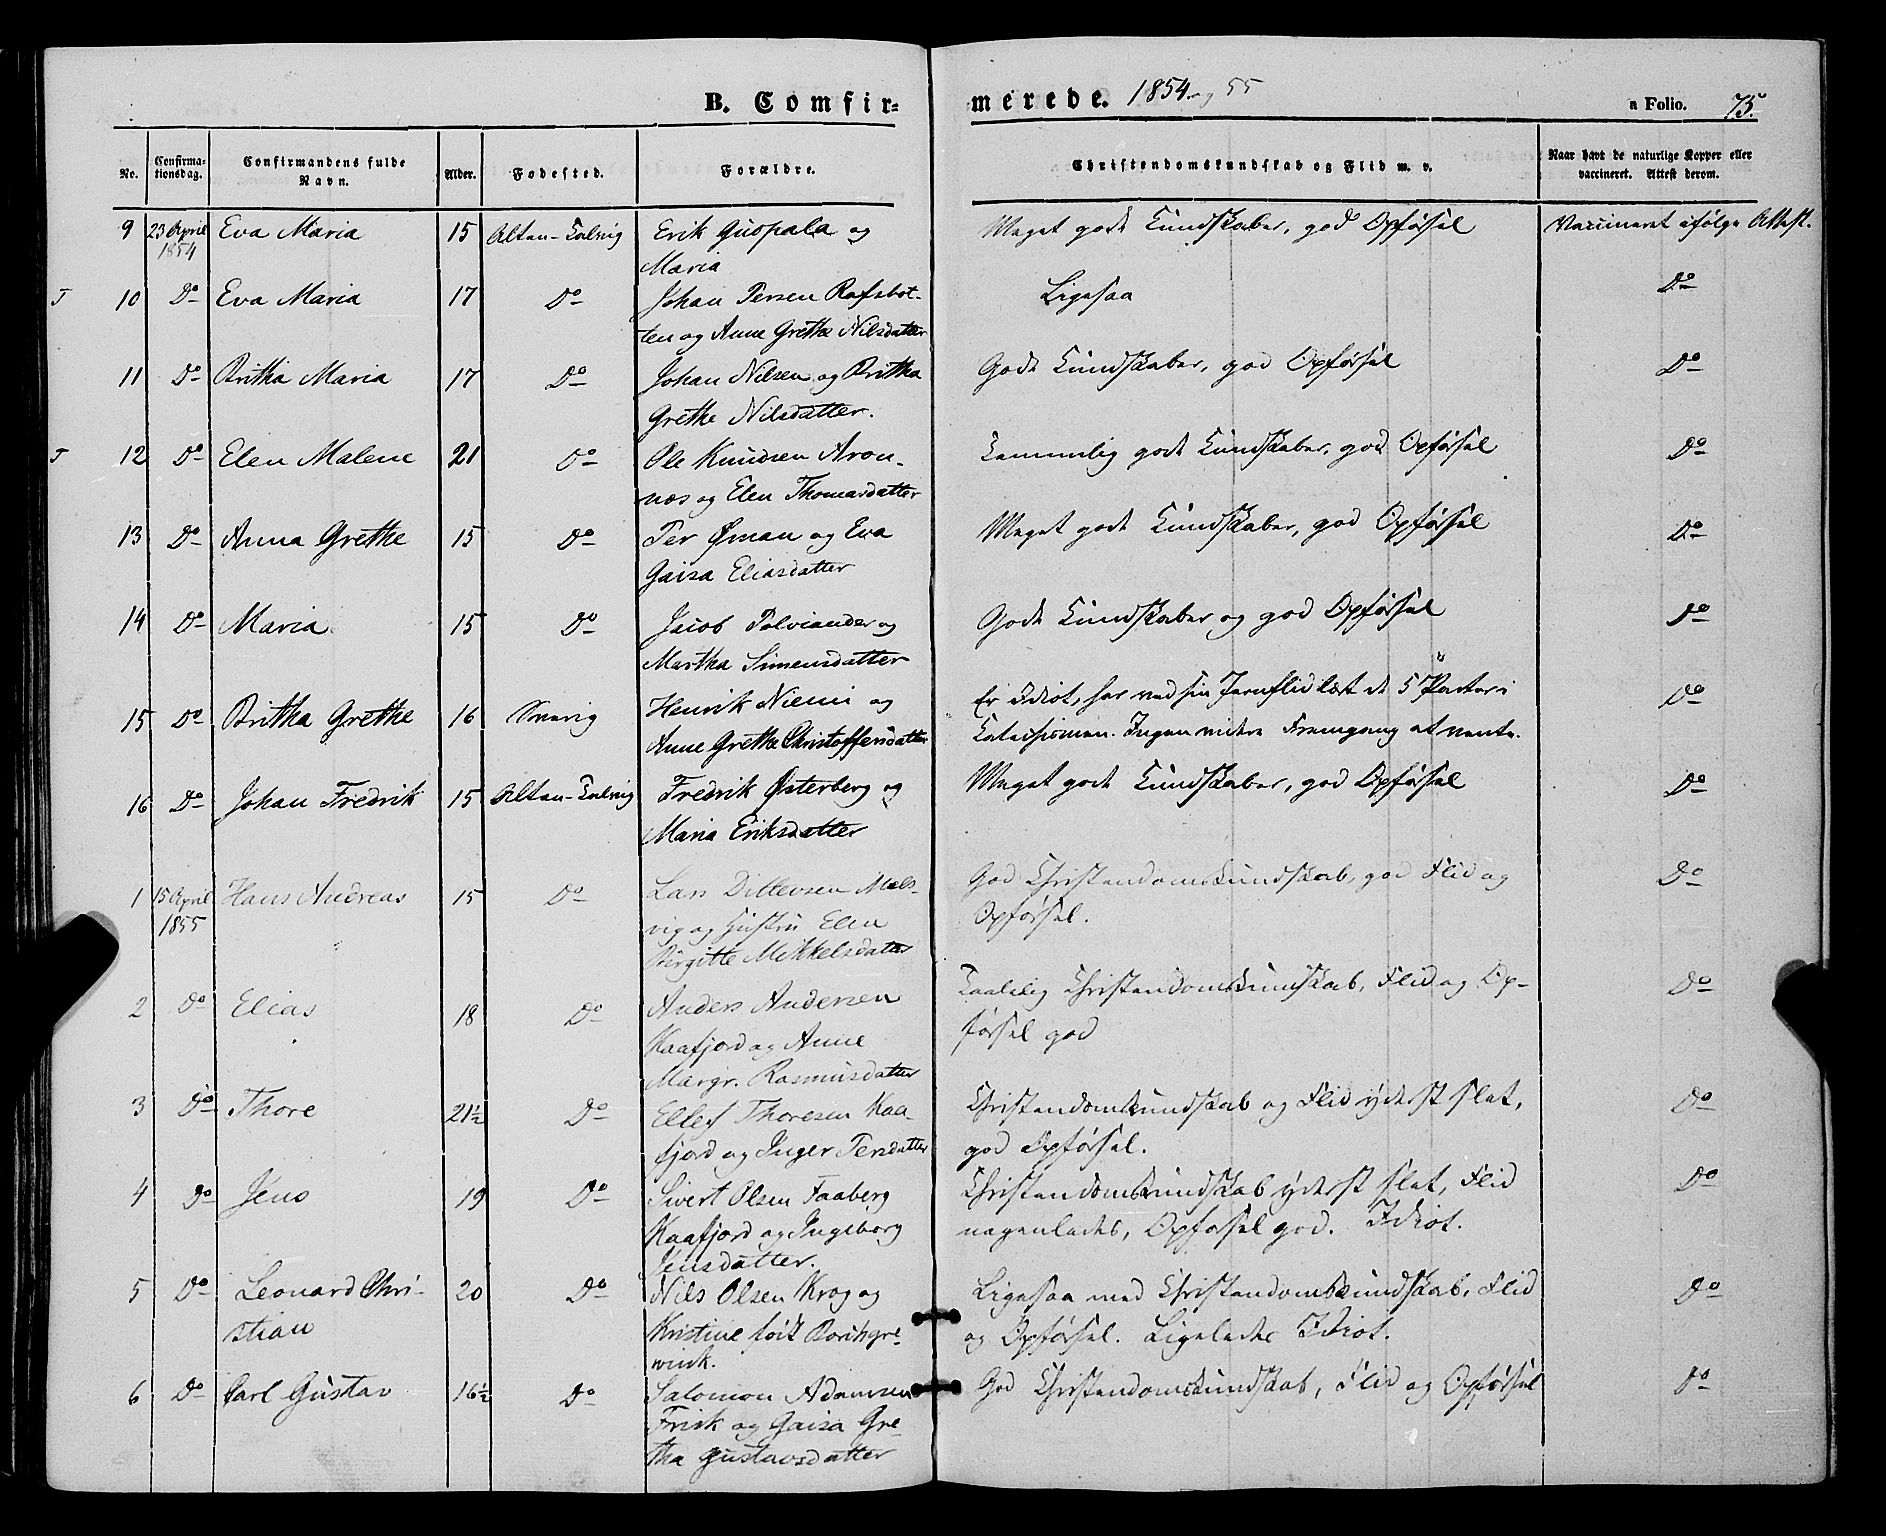 B. Comfirmerede. 1854 og 55
a Folio. 75.
No.
Confirmationsdag.
Confirmandens fulde Navn.
Alder.
Fødested.
Forældre.
Christendomskundskab og Flid m. v.
Naar havt de naturlige Kopper eller vaccineret. Attest derom.
9 23 April 1854 Eva Maria 15 Alten-Talvig Erik Guopala og Meget gode Kundskaber, god Opførsel Vaccineret ifølge Attest.
Maria
T 10 Do Eva Maria 17 Do Johan Persen Rafsbot- Ligesaa Do
ten og Anne Grethe Nilsdatter
11 Do Britha Maria 17 Do Johan Nilsen og Britha Gode Kundskaber, god Opførsel Do
Grethe Nilsdatter.
T 12 Do Elen Malene 21 Do Ole Knudsen Aron- Temmelig gode Kundskaber, god Opførsel Do
næs og Elen Thomasdatter
13 Do Anna Grethe 15 Do Per Øman og Eva Meget gode Kundskaber, god Opførsel Do
Gaisa Eliasdatter
14 Do Maria 15 Do Jacob Palviander og Gode Kundskaber og god Opførsel Do
Martha Simensdatter
15 Do Britha Grethe 16 Henrik Niemi og Er Idiot, har ved sin Jernflid læst de 5 Parter i Do
Anne Grethe Christoffersdatter Katechismen. Ingen videre Fremgang at vente.
16 Do Johan Fredrik 15 Alten-Talvig Fredrik Østerberg og Meget gode Kundskaber, god Opførsel Do
Maria Eriksdatter
1 15 April 1855 Hans Andreas 15 Do Lars Ditlevsen Mels- God Christendomskundskab, god Flid og Do
vig og Hustru Elen Opførsel.
Birgitte Mikkelsdatter
2 Do Elias 18 Do Anders Andersen Taalelig Christendomskundskab, Flid og Op- Do
Kaafjord og Anne førsel god
Margr. Rasmusdatter
3 Do Thore 21½ Do Ellef Thoresen Kaa- Christendomskundskab og Flid yderst slet, Do
fjord og Inger Persdatter god Opførsel.
4 Do Jens 19 Do Sivert Olsen Faaberg Christendomskundskab yderst slet, Flid Do
Kaafjord og Ingeborg nogenledes, Opførsel god. Idiot.
Jensdatter.
5 Do Leonard Chri- 20 Do Nils Olsen Krog og Ligesaa med Christendomskundskab, Flid Do
stian Kristine født Borchgre- og Opførsel. Ligeledes Idiot.
wink.
6 Do Carl Gustav 16½ Do Salomon Adamsen God Christendomskundskab, Flid og Opførsel Do
Frisk og Gaisa Gre-
tha Gustavsdatter